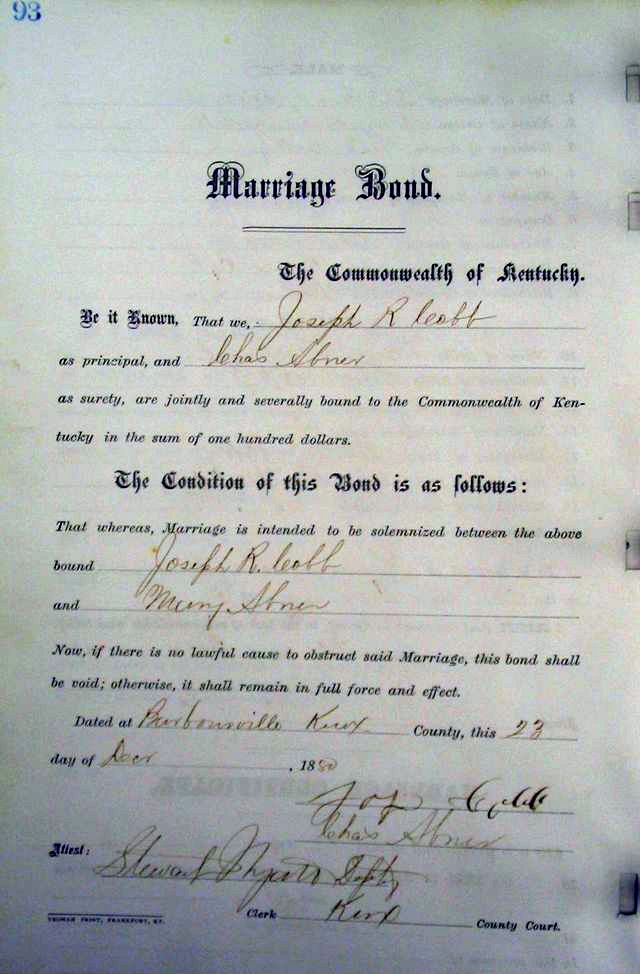 93
Marriage Bond.
The Commonwealth of Kentucky.
Be it Known, That we, Joseph R Cobb
as principal, and Chas Abner
as surety, are jointly and severally bound to the Commonwealth of Ken-
tucky in the sum of one hundred dollars.
The Condition of this Bond is as follows:
That whereas, Marriage is intended to be solemnized between the above
bound Joseph R. Cobb
and Mary Abner
Now, if there is no lawful cause to obstruct said Marriage, this bond shall
be void; otherwise, it shall remain in full force and effect.
Dated at Barbourville Knox County, this 23
day of Decr , 1880
Jos Cobb
Chas Abner
Attest: Stewart Depty
Clerk Knox County Court.
YEOMAN PRINT, FRANKFORT, KY.